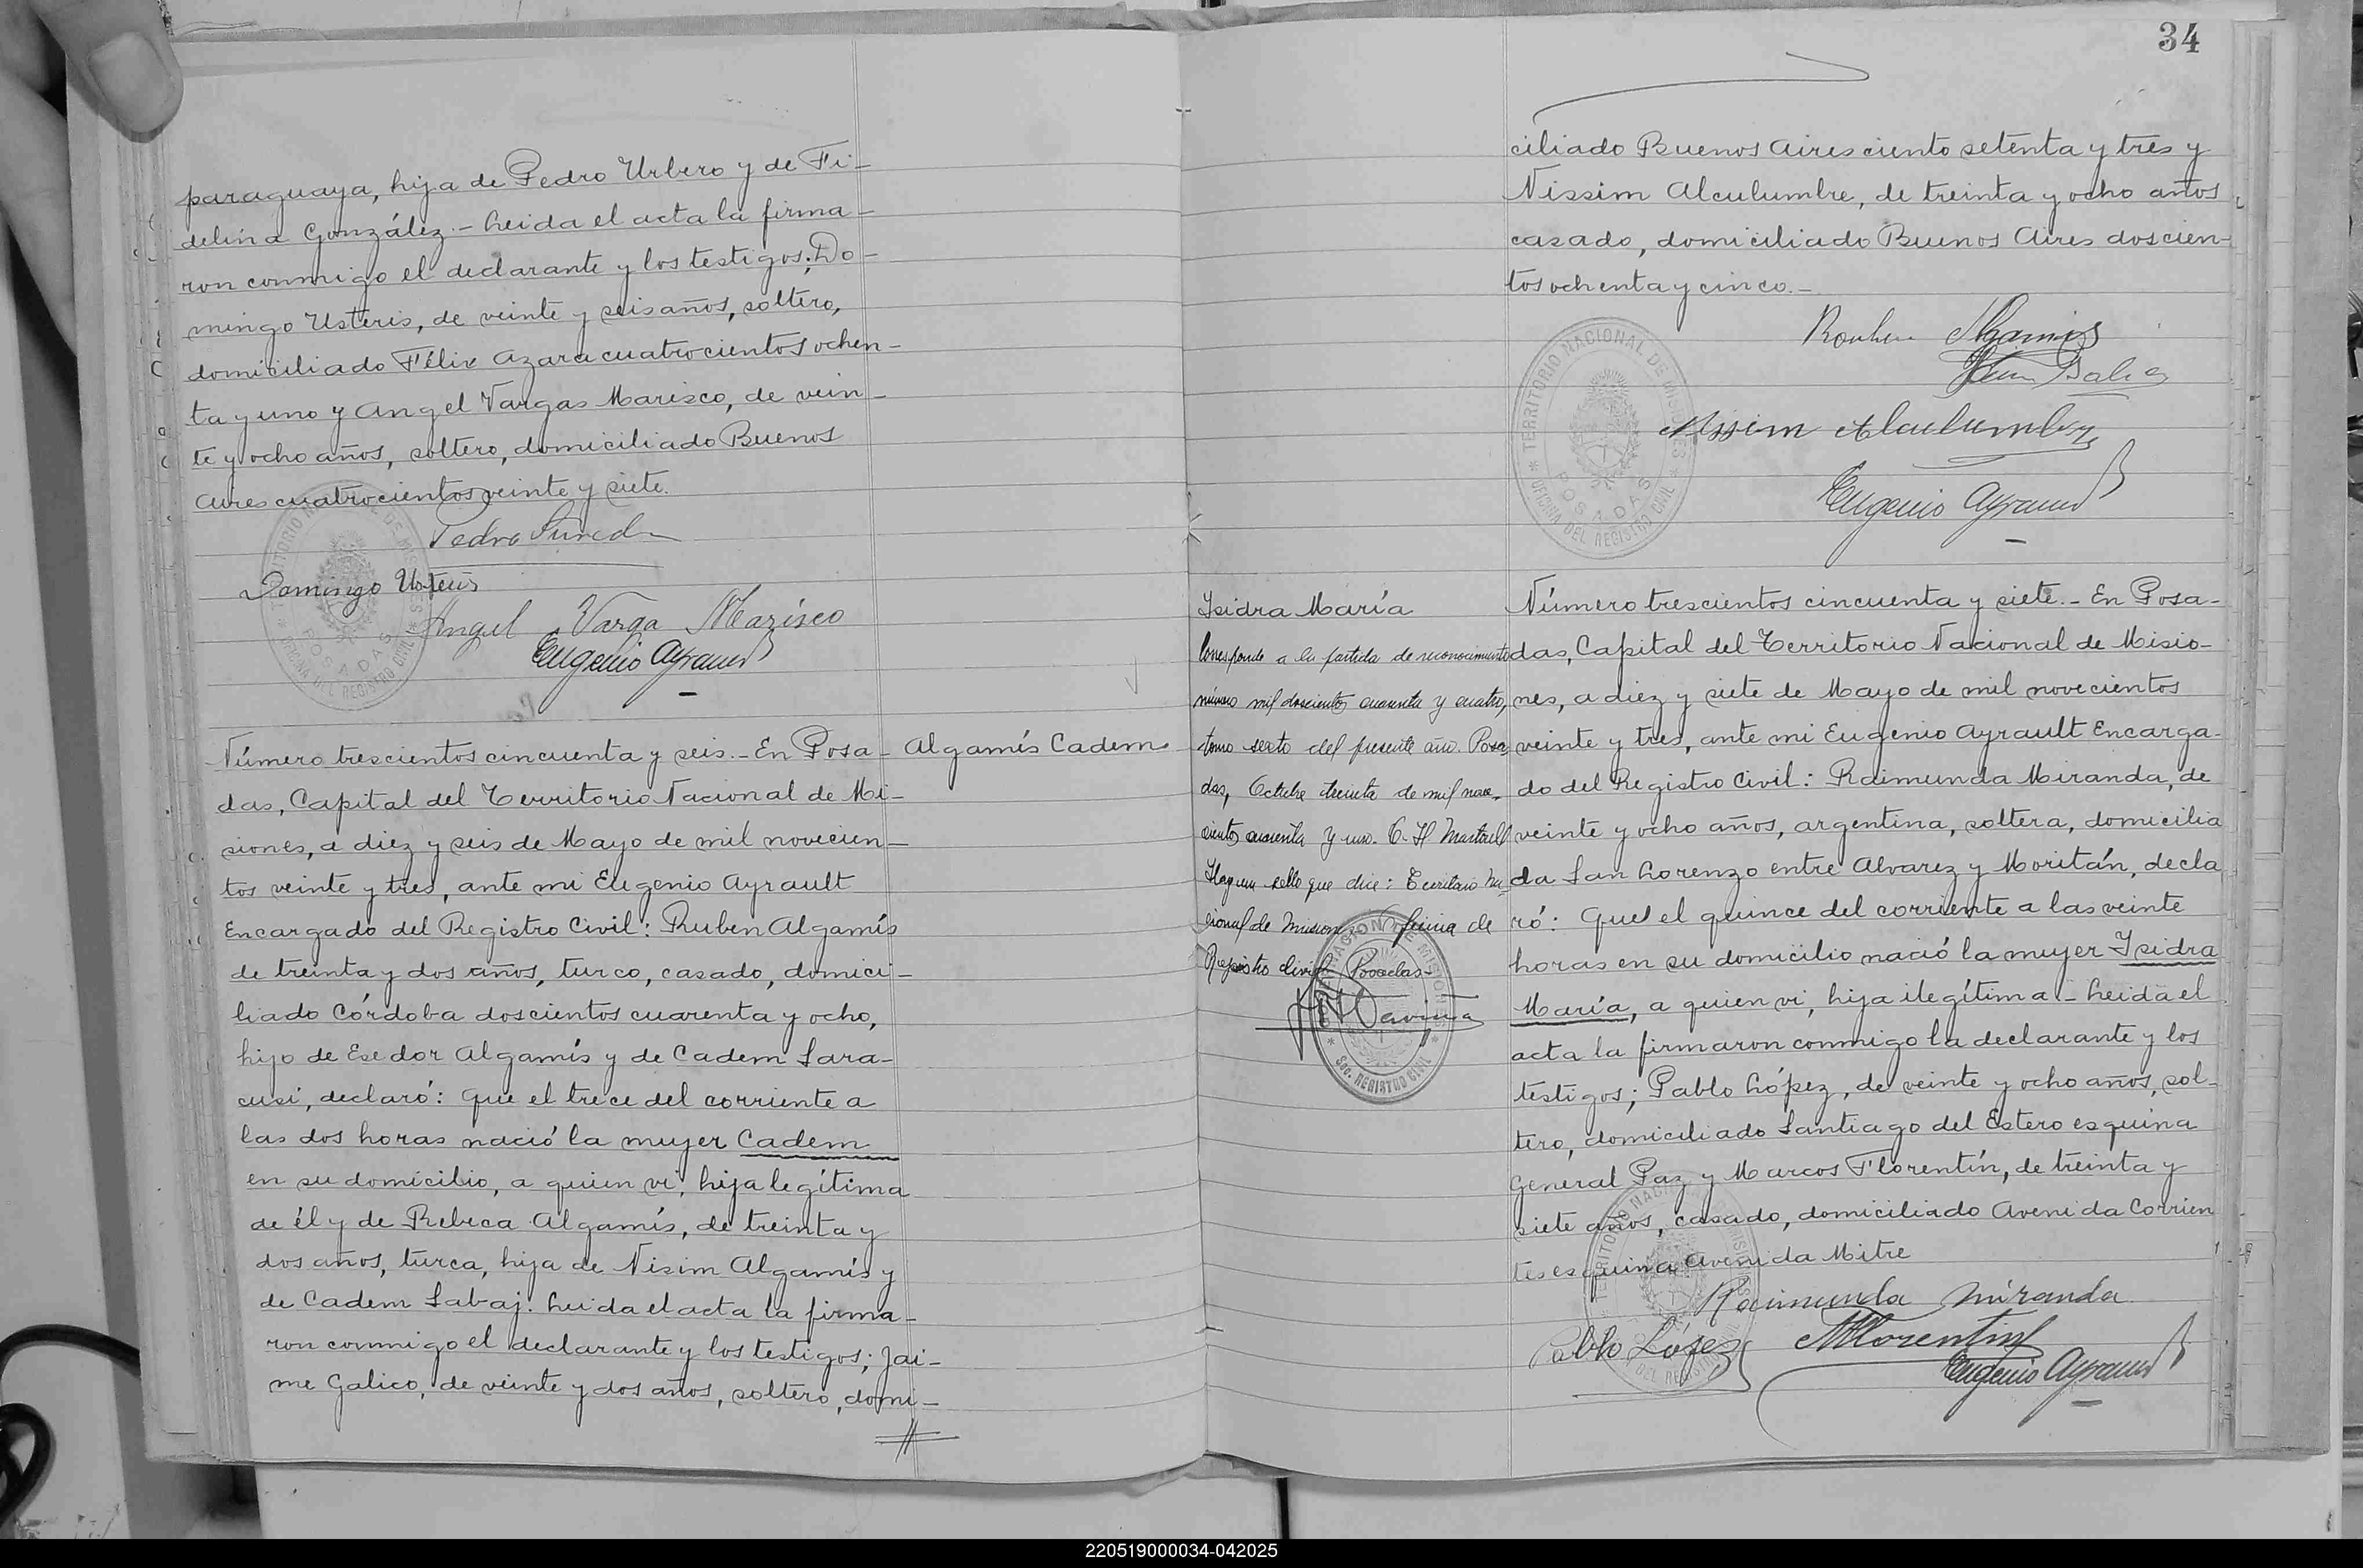 paraguaya, hija de Pedro Urbero y de Fi-
delina González.- Leida el acta la firma-
ron conmigo el declarante y los testigos; Do-
mingo Usteris, de veinte y seis años, soltero,
domiciliado Félix Azara cuatrocientos ochen-
ta y uno y Angel Vargas Marisco, de vein-
te y ocho años, soltero, domiciliado Buenos
Aires cuatrocientos veinte y siete.
Pedro
Domingo Usteris
Angel Varga Marisco
Eugenio Ayrault
Número trescientos cincuenta y seis.- En Posa-
das, Capital del Territorio Nacional de Mi-
siones, a diez y seis de Mayo de mil novecien-
tos veinte y tres, ante mi Eugenio Ayrault
Encargado del Registro Civil: Ruben Algamís
de treinta y dos años, turco, casado, domici-
liado Córdoba doscientos cuarenta y ocho,
hijo de Esedor Algamís y de Cadem Sara-
cusi, declaró: Que el trece del corriente a
las dos horas nació la mujer Cadem
en su domicilio, a quien vi, hija legítima
de él y de Rebeca Algamís, de treinta y
dos años, turca, hija de Nisim Algamís y
de Cadem Sabaj. Leida el acta la firma-
ron conmigo el declarante y los testigos; Jai-
me Galico, de veinte y dos años, soltero, domi-
Algamís Cadem
34
ciliado Buenos Aires ciento setenta y tres y
Nissim Alculumbre, de treinta y ocho años
casado, domiciliado Buenos Aires doscien-
tos ochenta y cinco.-
TERRITORIO NACIONAL DE MISIONES
POSADAS
OFICINA DEL REGISTRO CIVIL
Rouben Algamis
Nissim Alculumbre
Eugenio Ayrault
Isidra María
Corresponde a la partida de reconocimiento
número mil doscientos cuarenta y cuatro,
tomo sexto del presente año. Posa-
das, Octubre treinta de mil nove-
cientos cuarenta y uno.
Hay un sello que dice: Territorio Na-
cional de Misiones. Oficina de
Registro Civil Posadas-
Número trescientos cincuenta y siete.- En Posa-
das, Capital del Territorio Nacional de Misio-
nes, a diez y siete de Mayo de mil novecientos
veinte y tres, ante mi Eugenio Ayrault Encarga-
do del Registro Civil: Raimunda Miranda, de
veinte y ocho años, argentina, soltera, domicilia
da San Lorenzo entre Alvarez y Moritán, decla
ró: Que el quince del corriente a las veinte
horas en su domicilio nació la mujer Isidra
María, a quien vi, hija ilegítima.- Leida el
acta la firmaron conmigo la declarante y los
testigos; Pablo López, de veinte y ocho años, sol-
tero, domiciliado Santiago del Estero esquina
General Paz y Marcos Florentín, de treinta y
siete años, casado, domiciliado Avenida Corrien
tes esquina Avenida Mitre
Raimunda Miranda
Pablo López MFlorentin
Eugenio Ayrault
220519000034-042025